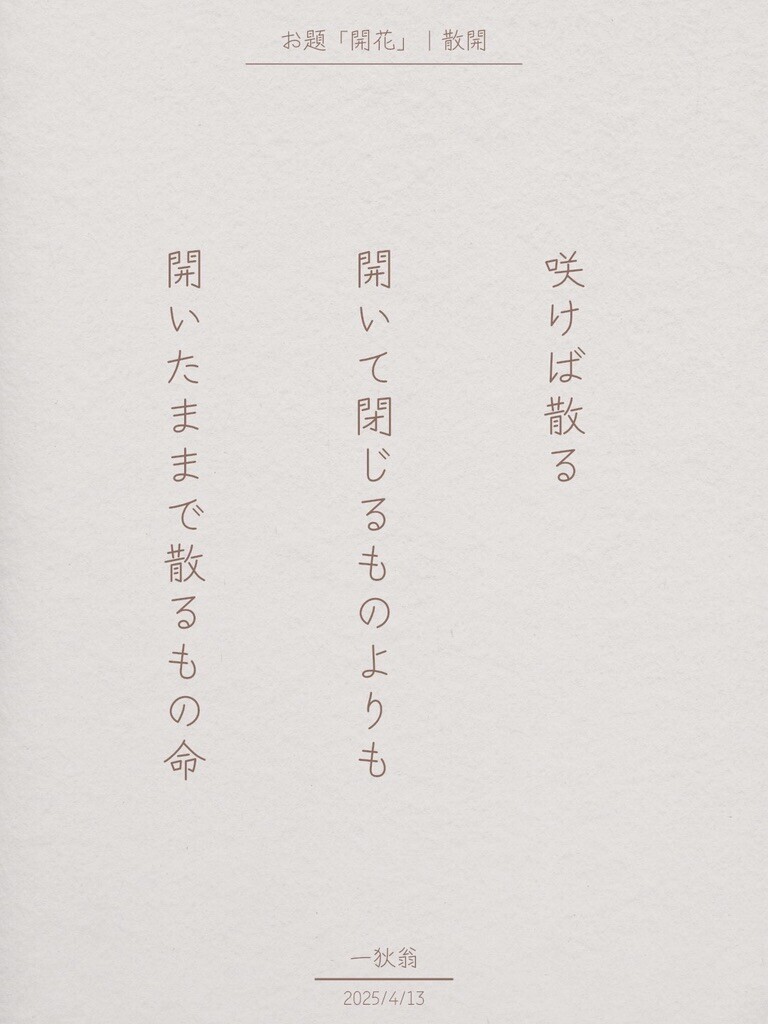 お題「開花」｜散開
咲けば散る
開いて閉じるものよりも
開いたままで散るもの命
一狄翁
2025/4/13